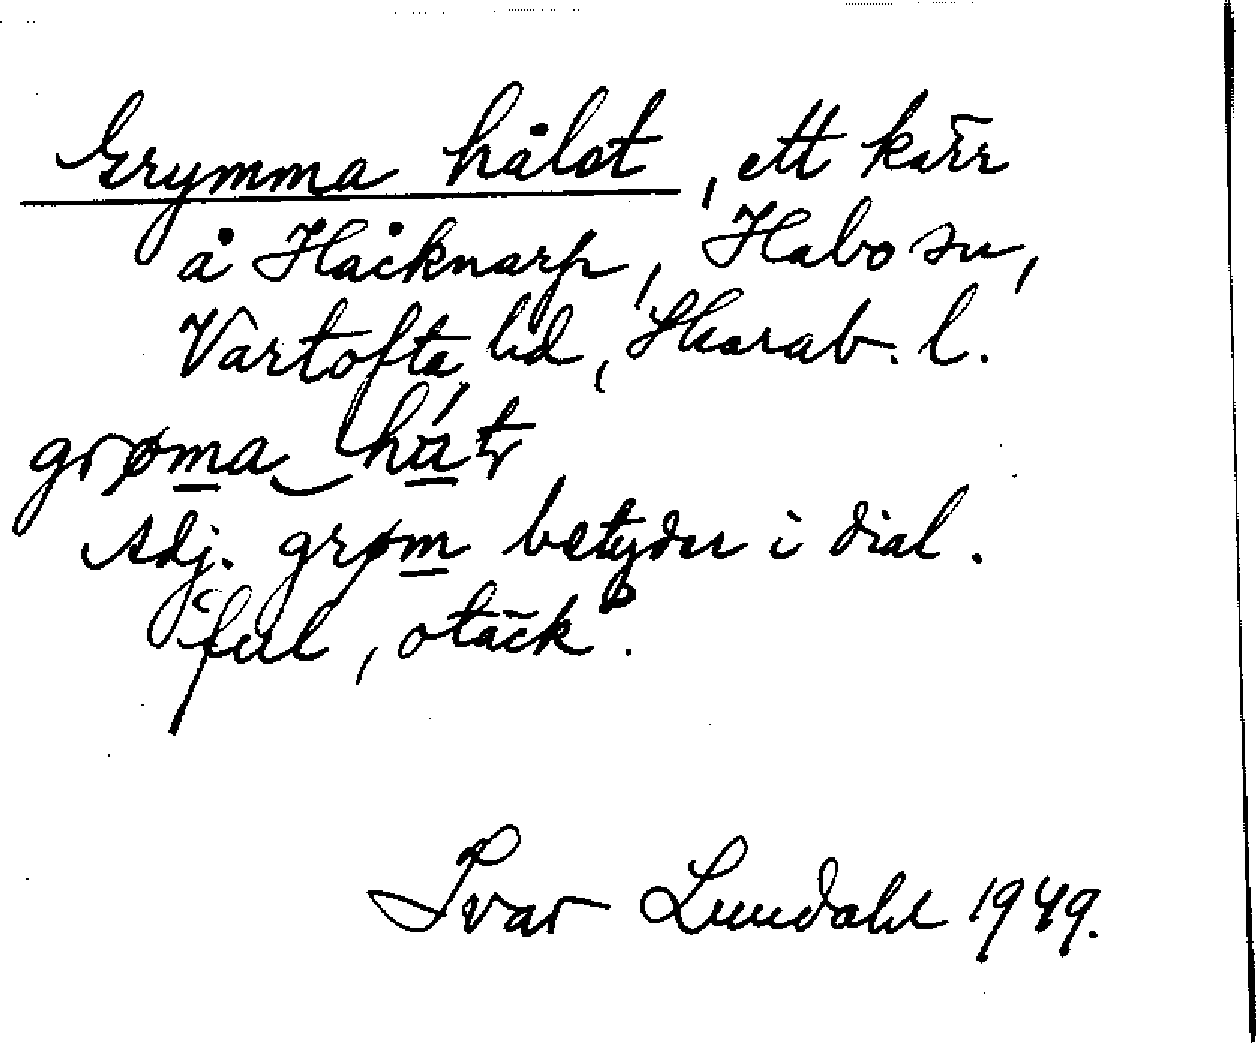 Grymma hålet, ett kärr
å Håcknarp, Habo sn,
Vartofta hd, Skarab. l.
grøma hát
Adj. grøm betyder i dial.
"ful, otäck".
Ivar Lundahl 1949.